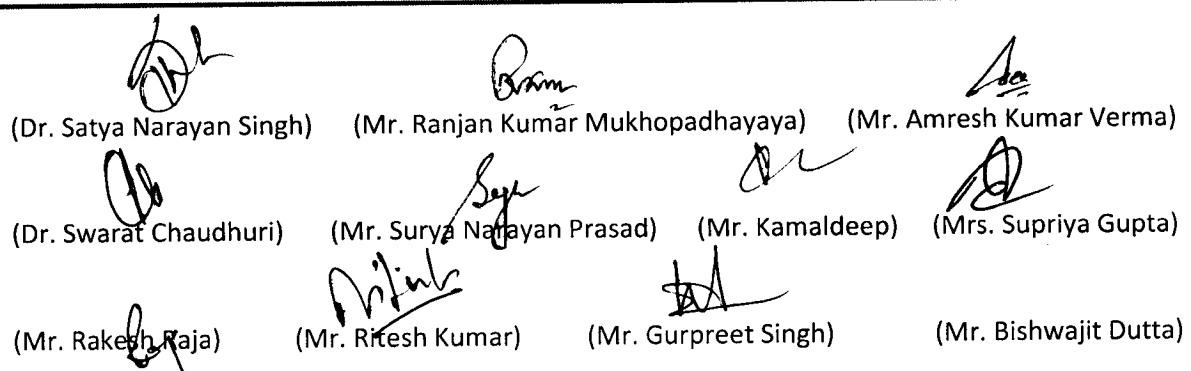 (Dr. Satya Narayan Singh) (Mr. Ranjan Kumar Mukhopadhayaya) (Mr. Amresh Kumar Verma)
(Dr. Swarat Chaudhuri) (Mr. Surya Narayan Prasad) (Mr. Kamaldeep) (Mrs. Supriya Gupta)
(Mr. Rakesh Raja) (Mr. Ritesh Kumar) (Mr. Gurpreet Singh) (Mr. Bishwajit Dutta)